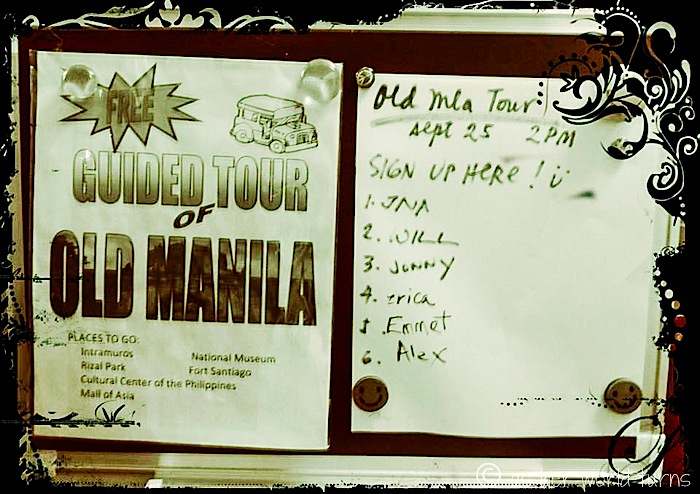 FREE
GUIDED TOUR
OF
OLD MANILA
PLACES TO GO:
Intramuros
Rizal Park
Cultural Center of the Philippines
Mall of Asia
National Museum
Fort Santiago
Old Mla Tour:
Sept 25 2PM
SIGN UP HERE!
1. JNA
2. WILL
3. JONNY
4. erica
5. Emmet
6. Alex
world turns